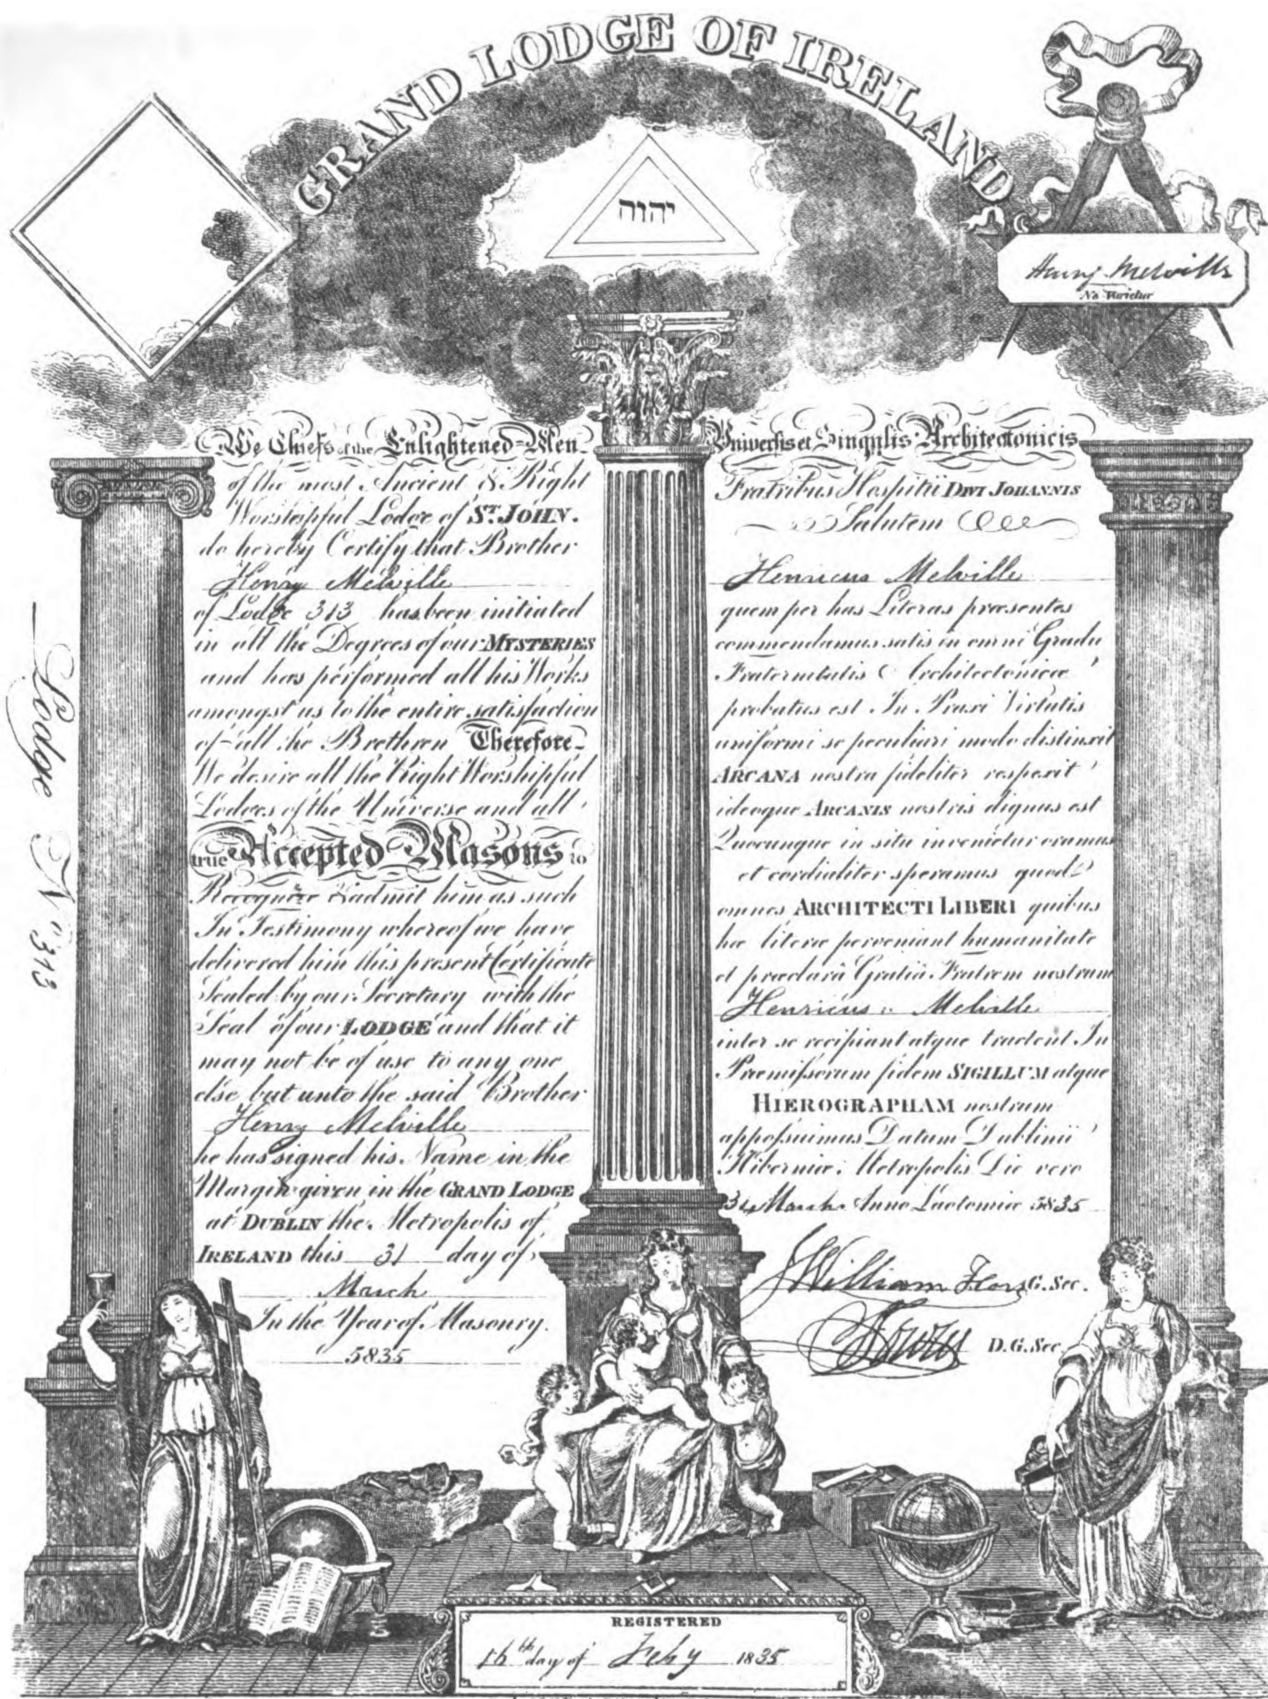 GRAND LODGE OF IRELAND
יהוה
Henry Melville
Ne Varietur
We Chiefs of the Enlightened Men
of the most Ancient & Right
Worshipful Lodge of ST. JOHN.
do hereby Certify that Brother
Henry Melville
of Lodge 313 has been initiated
in all the Degrees of our MYSTERIES
and has performed all his Works
amongst us to the entire satisfaction
of all the Brethren Therefore
We desire all the Right Worshipful
Lodges of the Universe and all
true Accepted Masons to
Recognize & admit him as such
In Testimony whereof we have
delivered him this present Certificate
Sealed by our Secretary with the
Seal of our LODGE and that it
may not be of use to any one
else but unto the said Brother
Henry Melville
he has signed his Name in the
Margin given in the GRAND LODGE
at DUBLIN the Metropolis of
IRELAND this 31 day of
March
In the Year of Masonry.
5835
Universis et Singulis Architectonicis
Fratribus Hospitii DIVI JOHANNIS
Salutem
Henricus Melville
quem per has Literas præsentes
commendamus satis in omni Gradu
Fraternitatis Architectonicæ
probatus est In Praxi Virtutis
uniformi se peculiari modo distinxit
ARCANA nostra fideliter respexit
ideoque ARCANIS nostris dignus est
Quocunque in situ invenietur oramus
et cordialiter speramus quod
omnes ARCHITECTI LIBERI quibus
hæ literæ perveniant humanitate
et præclarâ Gratiâ Fratrem nostrum
Henricus Melville
inter se recipiant atque tractent In
Præmissorum fidem SIGILLUM atque
HIEROGRAPHAM nostrum
appossuimus Datum Dublinii
Hiberniæ Metropolis Die vero
31 March Anno Laotomiæ 5835
William G. Sec.
D.G. Sec.
Lodge No 313
REGISTERED
16th day of Feby 1835